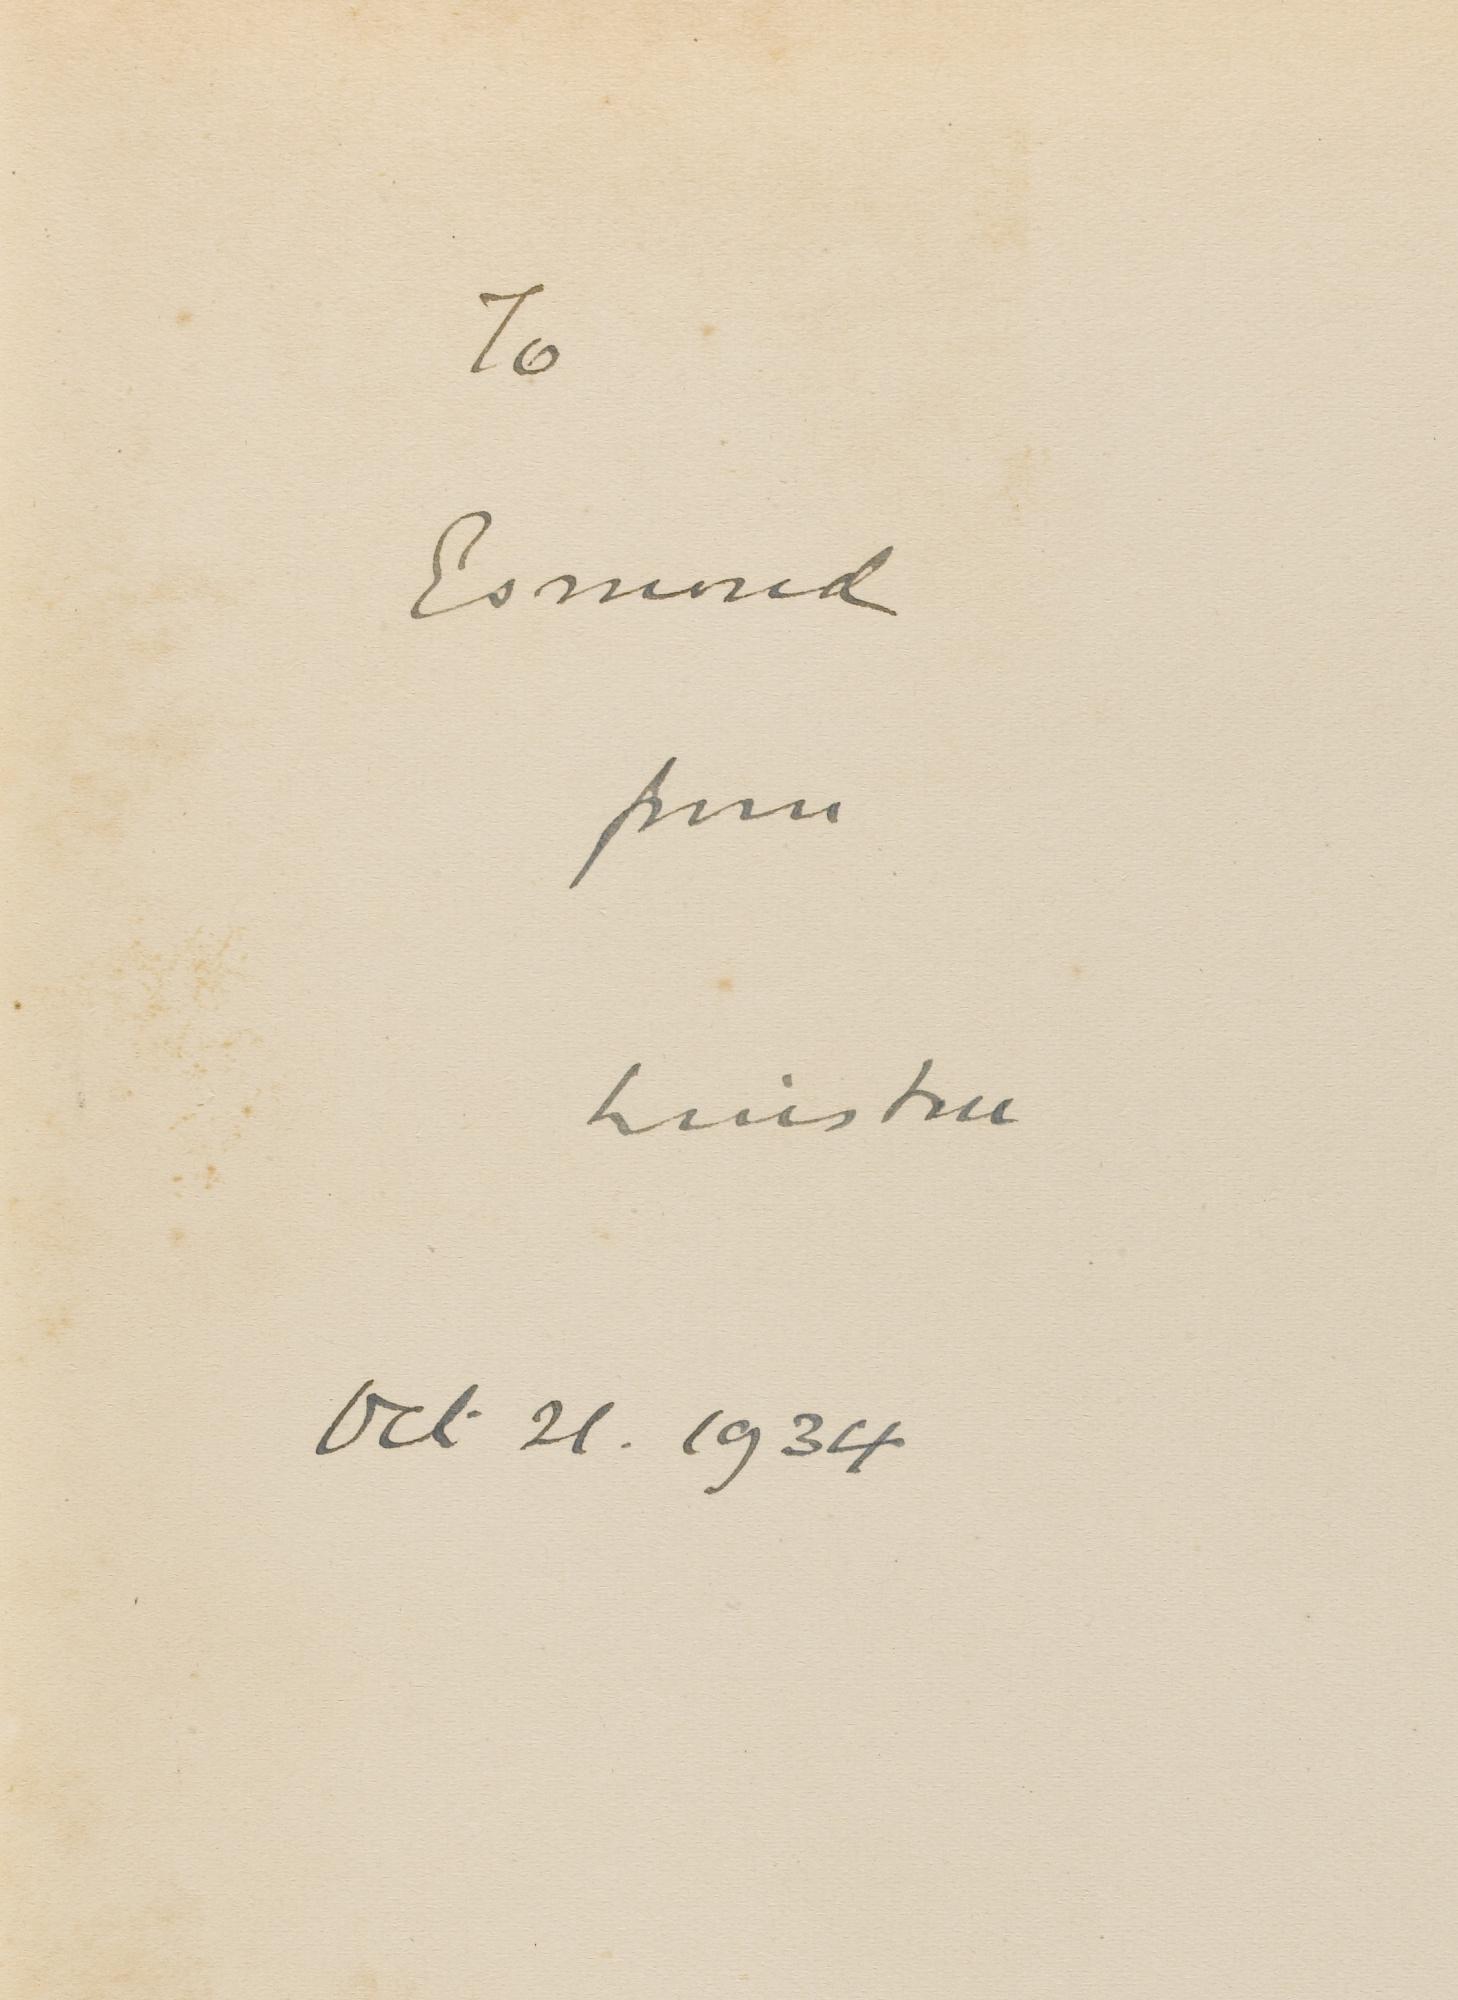 To
Esmond
from
Winston
Oct 21. 1934